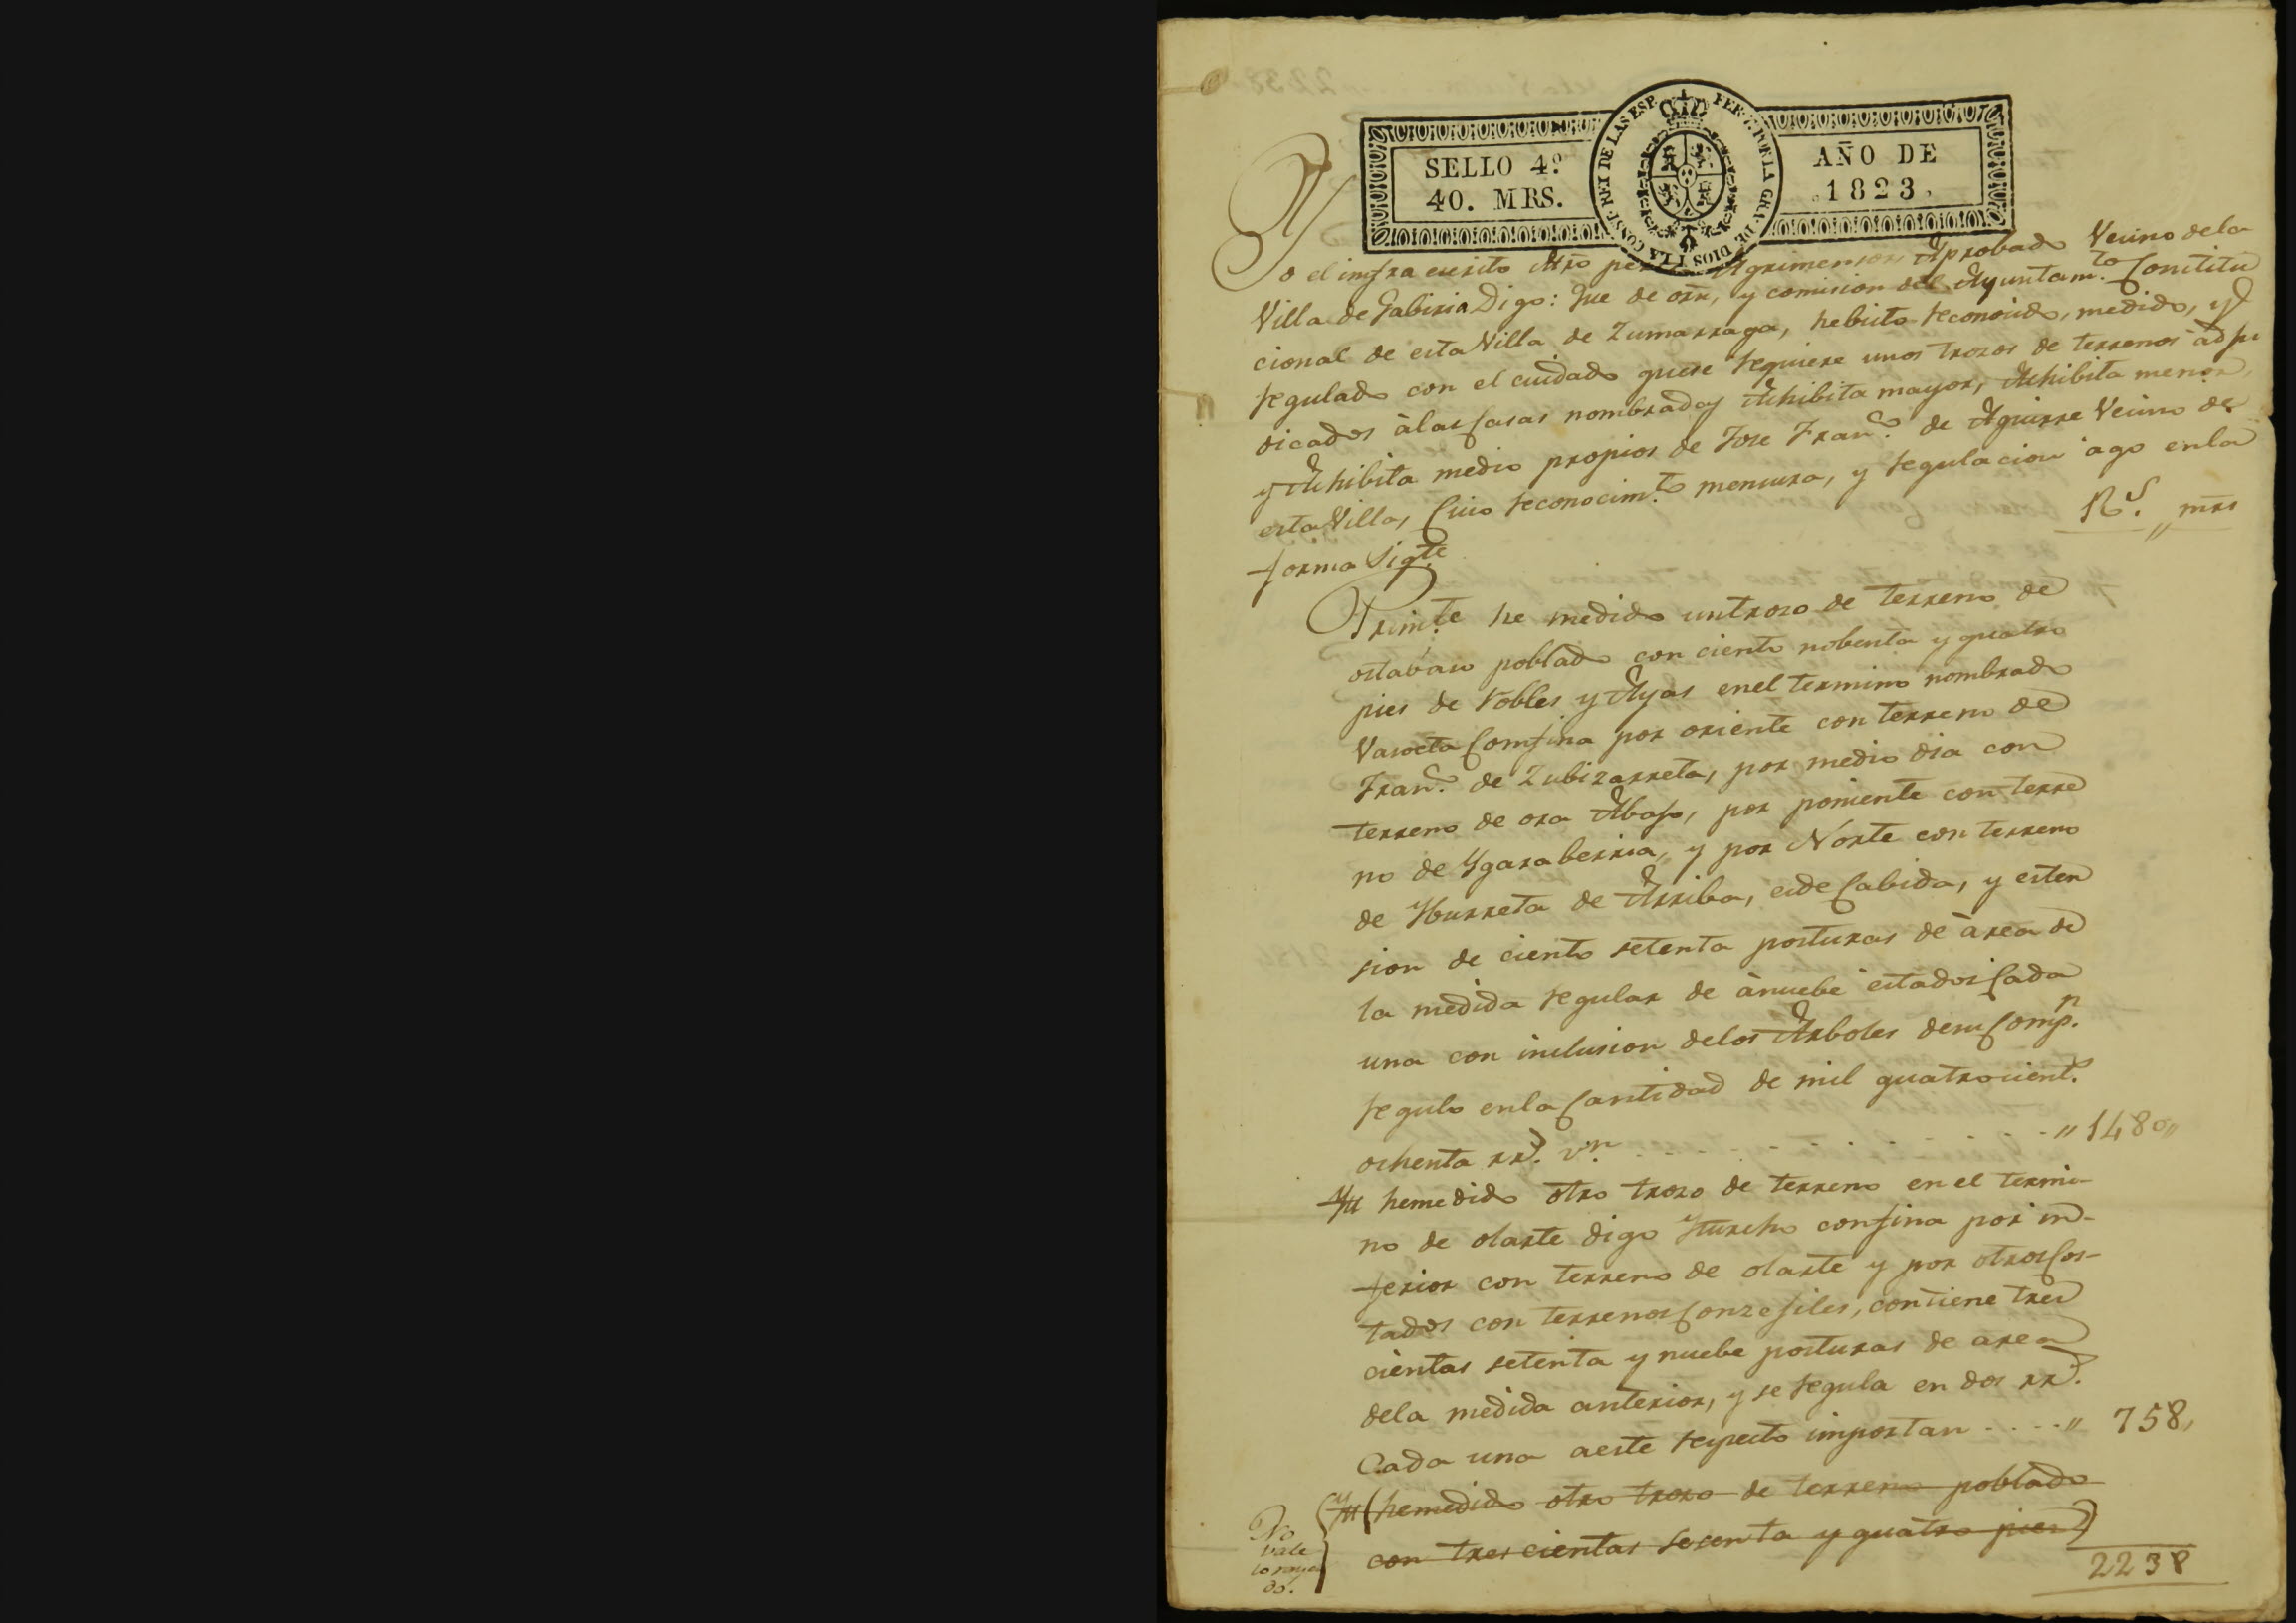 SELLO 4º
40. MRS.
FER. 7. POR LA GRA. DE DIOS Y LA CONST. REY DE LAS ESP.
AÑO DE
1823.
Yo el infra escrito Mro Agrimensor Aprobado Vecino dela
Villa de Gabiria Digo: Que de orn, y comision del Ayuntam.to Constitu
cional de esta Villa de Zumarraga, he visto reconocido, medido, y
regulado con el cuidado que se requiere unos trozos de terrenos àdju
dicados àlas Casas nombradas Achibita mayor, Achibita menor,
y Achibita medio propios de Jose Fran.co de Aguirre Vecino de
esta Villa, Cuio reconocim.to mensura, y regulacion ago enla
forma Sig.te
R.s „ mrs
Prim.te he medido untrozo de terreno de
ostabaso poblado con ciento nobenta y quatro
pies de Robles y Ayas enel termino nombrado
Vasoeta Confina por oriente con terreno de
Fran.co de Zubizarreta, por medio dia con
terreno de ora Abajo, por poniente con terre
no de Ygaraberria, y por Norte con terreno
de Yburreta de Arriba, es de Cabida, y esten
sion de ciento setenta posturas de àrea de
la medida regular de ànuebe estados Cada
una con inclusion delos Arboles desu Comp.n
regulo enla Cantidad de mil quatrocient.s
ochenta rr.s v.n . . . . . . . . . . „ 1480„
Yt hemedido otro trozo de terreno en el termi-
no de olarte digo Yturcho confina por in-
ferior con terreno de olarte y por otros Cos-
tados con terrenos Conzejiles, contiene tres
cientas setenta y nuebe posturas de area
dela medida anterior, y se regula en dos rr.s
Cada una aeste respecto importan . . . . „ 758,
Yt (hemedido otro trozo de terreno poblado
con tres cientas sesenta y quatro pies)
No
vale
lo raya
do.
2238